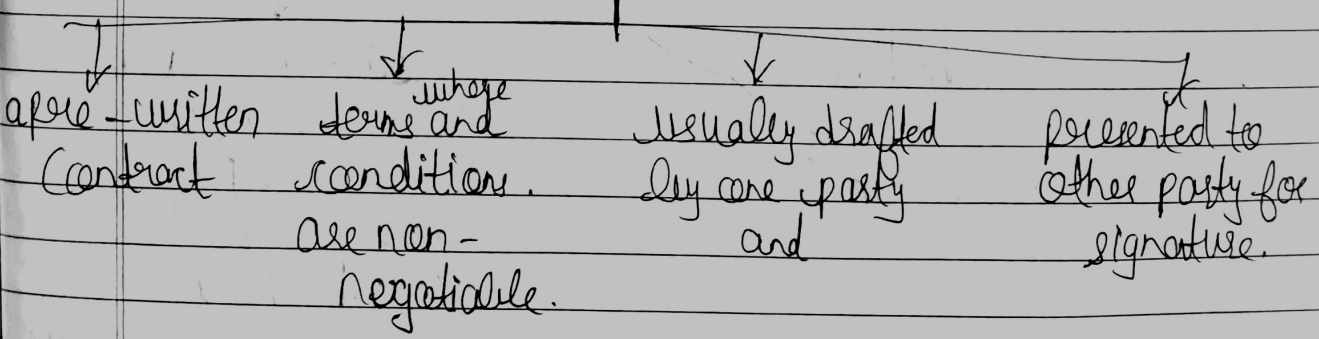 a pre-written
contract
where
terms and
conditions.
are non-
negotiable.
usually drafted
by one party
and
presented to
other party for
signature.